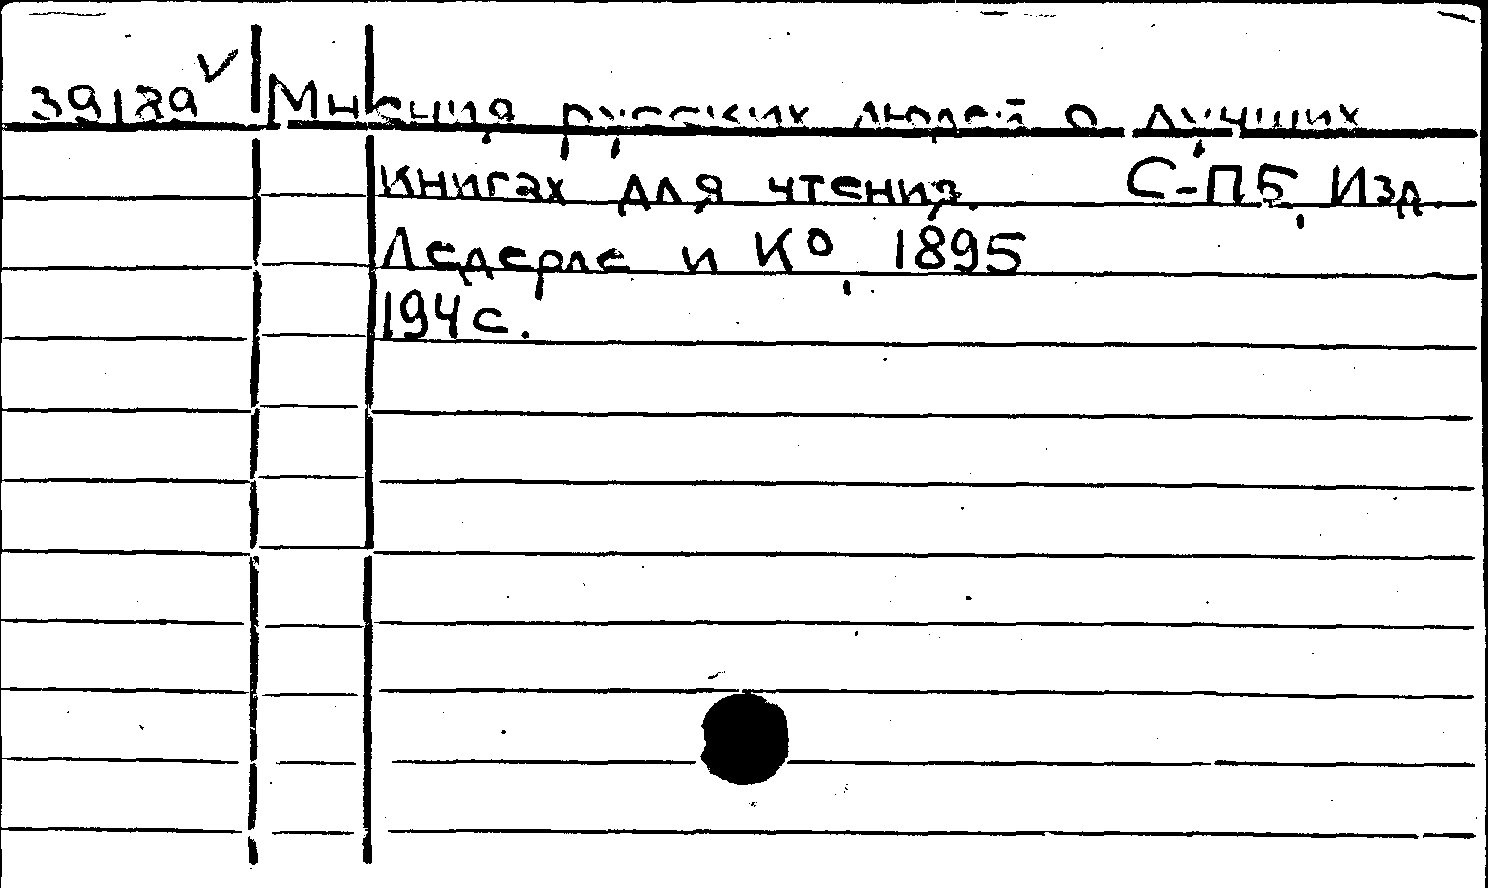 39189 ✓ Мнения русских людей о лучших
книгах для чтения. С-ПБ, Изд.
Ледерле и Кº, 1895
194 с.